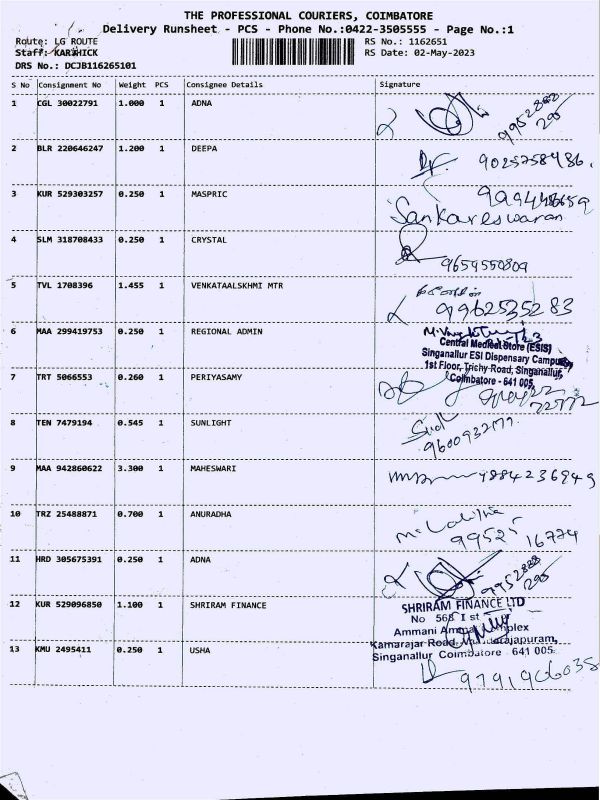 THE PROFESSIONAL COURIERS, COIMBATORE
Delivery Runsheet - PCS - Phone No.:0422-3505555 - Page No.:1
Route: LG ROUTE RS No.: 1162651
Staff: KARTHICK RS Date: 02-May-2023
DRS No.: DCJB116265101
S No Consignment No Weight PCS Consignee Details Signature
1 CGL 30022791 1.000 1 ADNA
2 BLR 220646247 1.200 1 DEEPA 9025758486.
3 KUR 529303257 0.250 1 MASPRIC
Sankareswaran
4 SLM 318708433 0.250 1 CRYSTAL
9659550809
5 TVL 1708396 1.455 1 VENKATAALSKHMI MTR
9962535283
6 MAA 299419753 0.250 1 REGIONAL ADMIN
Central Medical Store (ESIS)
Singanallur ESI Dispensary Campus
1st Floor, Trichy Road, Singanallur,
Coimbatore - 641 005.
7 TRT 5066553 0.260 1 PERIYASAMY
8 TEN 7479194 0.545 1 SUNLIGHT
9 MAA 942860622 3.300 1 MAHESWARI 9884236949
10 TRZ 25488871 0.700 1 ANURADHA
99525 16774
11 HRD 305675391 0.250 1 ADNA
12 KUR 529096850 1.100 1 SHRIRAM FINANCE
SHRIRAM FINANCE LTD
No 568 I st
Ammani Complex
Kamarajar Road,
Singanallur Coimbatore 641 005.
13 KMU 2495411 0.250 1 USHA
9791906035